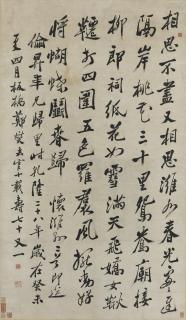 相思不盡又相思濰水春光處處遲
隔岸桃花三十里鴛鴦廟接
柳郎祠紙花如雪滿天飛嬌女鞦
韆打四圍五色羅裙風擺動好
將蝴蝶鬥春歸 懷濰縣二首送
倫昇年兄歸里時乾隆二十八年歲在癸未
夏四月板橋鄭燮去官十載壽七十又一